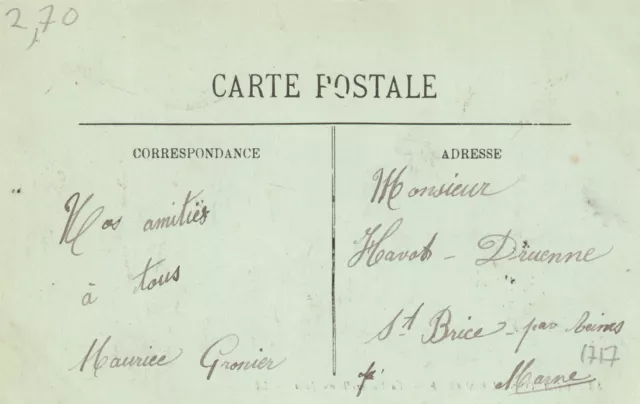 2,70
CARTE POSTALE
CORRESPONDANCE
Nos amitiés
à tous
Maurice Gronier
ADRESSE
Monsieur
Havot - Druenne
St Brice - par Reims
(717
Marne